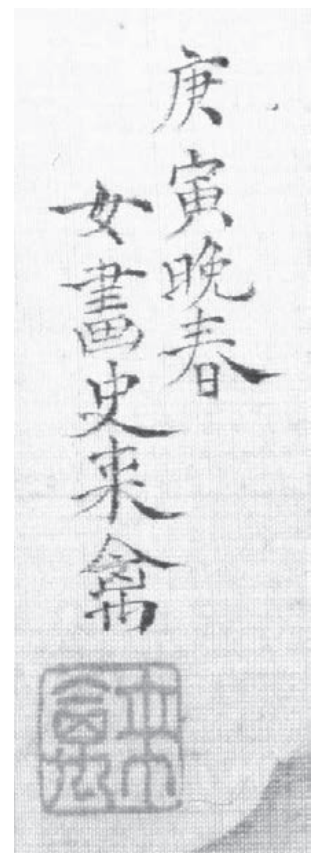 庚寅晚春
女畫史来禽
來禽